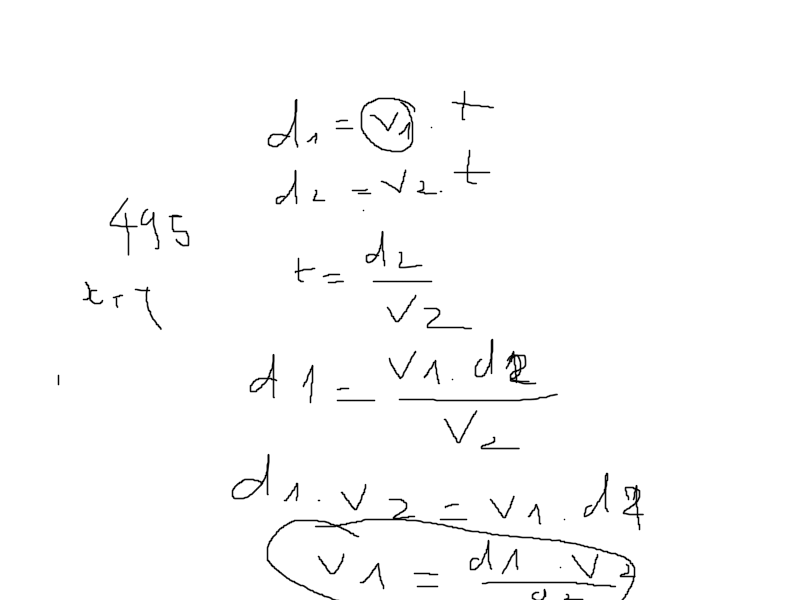 d1 = v1 . t
d2 = v2 . t
495
t = d2 / v2
d1 = v1 . d2 / v2
d1 . v2 = v1 . d2
v1 = d1 . v2 / d2